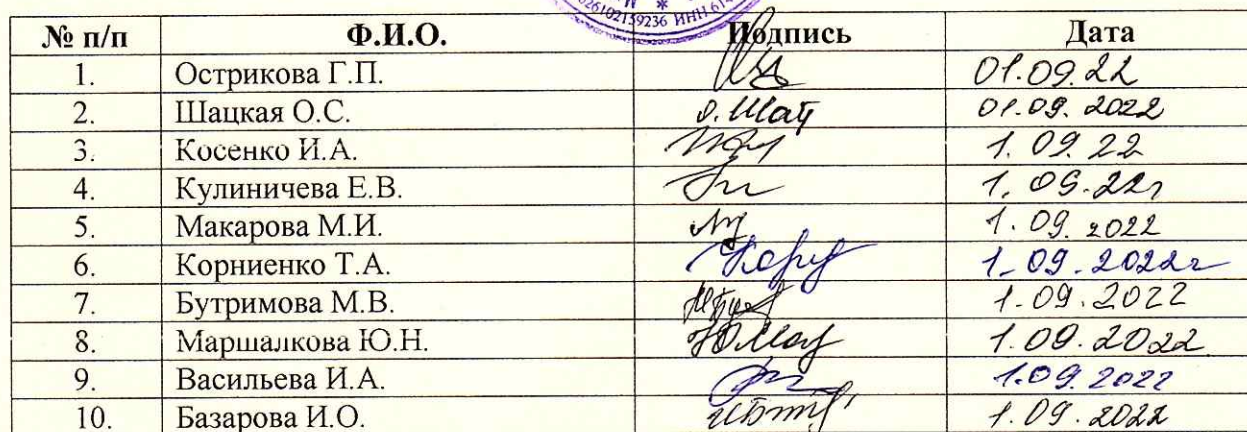 026102159236 ИНН 61
№ п/п Ф.И.О. Подпись Дата
1. Острикова Г.П. 01.09.22
2. Шацкая О.С. О.Шац 01.09.2022
3. Косенко И.А. 1.09.22
4. Кулиничева Е.В. 1.09.22г
5. Макарова М.И. 1.09.2022
6. Корниенко Т.А. 1.09.2022г
7. Бутримова М.В. 1.09.2022
8. Маршалкова Ю.Н. 1.09.2022
9. Васильева И.А. 1.09.2022
10. Базарова И.О. 1.09.2022